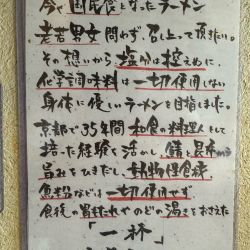 今や国民食となったラーメン
老若男女問わず召し上って頂きたい。
その想いから塩分は控えめに
化学調味料は一切使用しない
身体に優しいラーメンを目指しました。
京都で35年間和食の料理人として
培った経験を活かし、鯖と昆布から
旨みをひきだし、動物性食痲
魚粉などは一切使用せず
食後の胃もたれやのどの渇きをおさえた
「一杯」